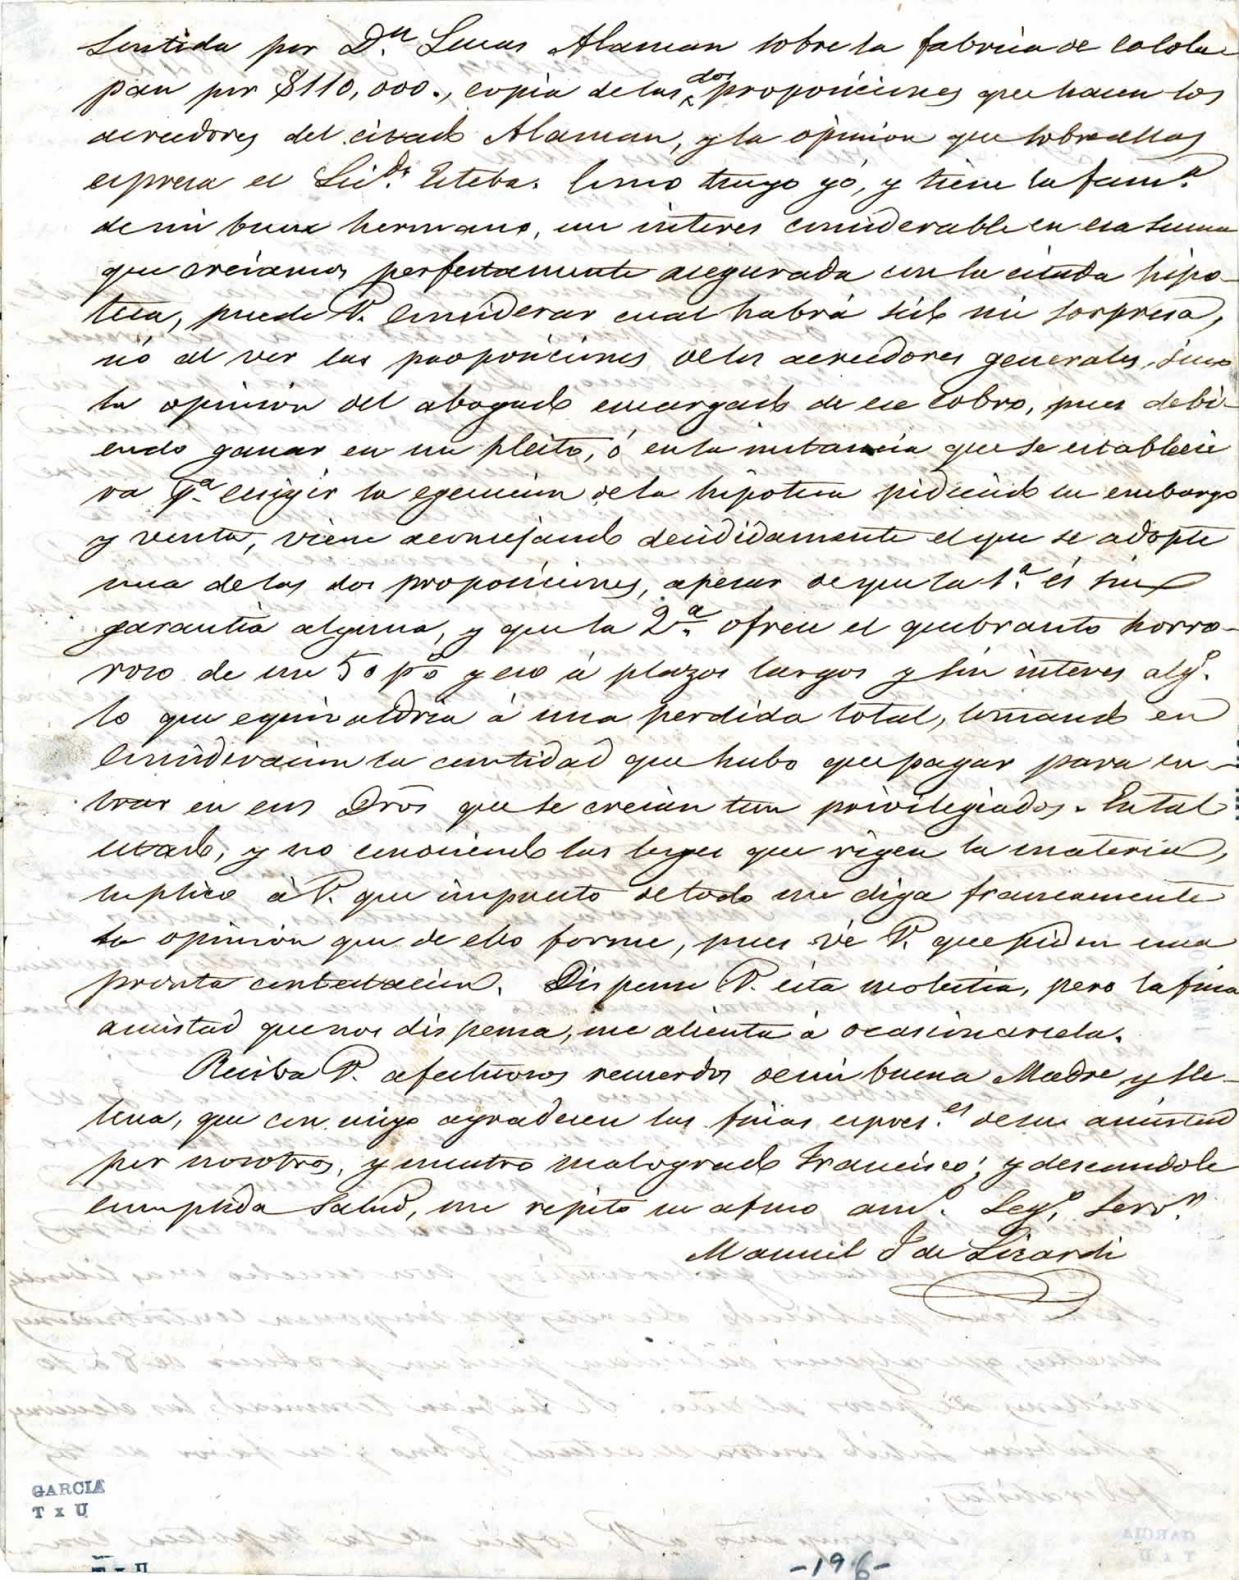 sentida por D.n Lucas Alaman sobre la fabrica de Cocola-
pan por $110,000., copia de las dos proposiciones que hacen los
acreedores del citado Alaman, y la opinion que sobre ellas
espresa el Lic.do Esteba. Como tengo yó, y tiene la fam.a
de mi buen hermano, un interes considerable en esa suma
que creiamos perfectamente asegurada con la citada hipo-
teca, puede V. considerar cual habrá sido mi sorpresa,
nó al ver las proposiciones de los acreedores generales, sino
la opinion del abogado encargado de ese cobro, pues debi-
endo ganar en un pleito, ó en la instancia que se establecie
ra p.a exigir la egecucion de la hipoteca pidiendo su embargo
y venta, viene aconsejando decididamente el que se adopte
una de las dos proposiciones, apesar de que la 1.a és sin
garantia alguna, y que la 2.a ofrece el quebranto horro-
roso de un 50 p% y eso á plazos largos y sin interes alg.o
lo que equivaldria á una perdida total, tomando en
consideracion la cantidad que hubo que pagar para en-
trar en esos Dros que se creian tan privilegiados. En tal
estado, y no conociendo las leyes que rigen la materia,
suplico á V. que impuesto de todo me diga francamente
la opinion que de ello forme, pues vé V. que piden una
pronta contestacion. Dispense V. esta molestia, pero la fina
amistad que nos dispensa, me alienta á ocasionarsela.
Reciba V. afectuosos recuerdos de mi buena Madre y He-
lena, que con migo agradecen las finas espres.es de su amistad
por nosotros, y nuestro malogrado Francisco; y deseandole
cumplida salud, me repito su afmo am.o Seg.o Serv.r
Manuel J de Lizardi
GARCIA
T x U
-196-